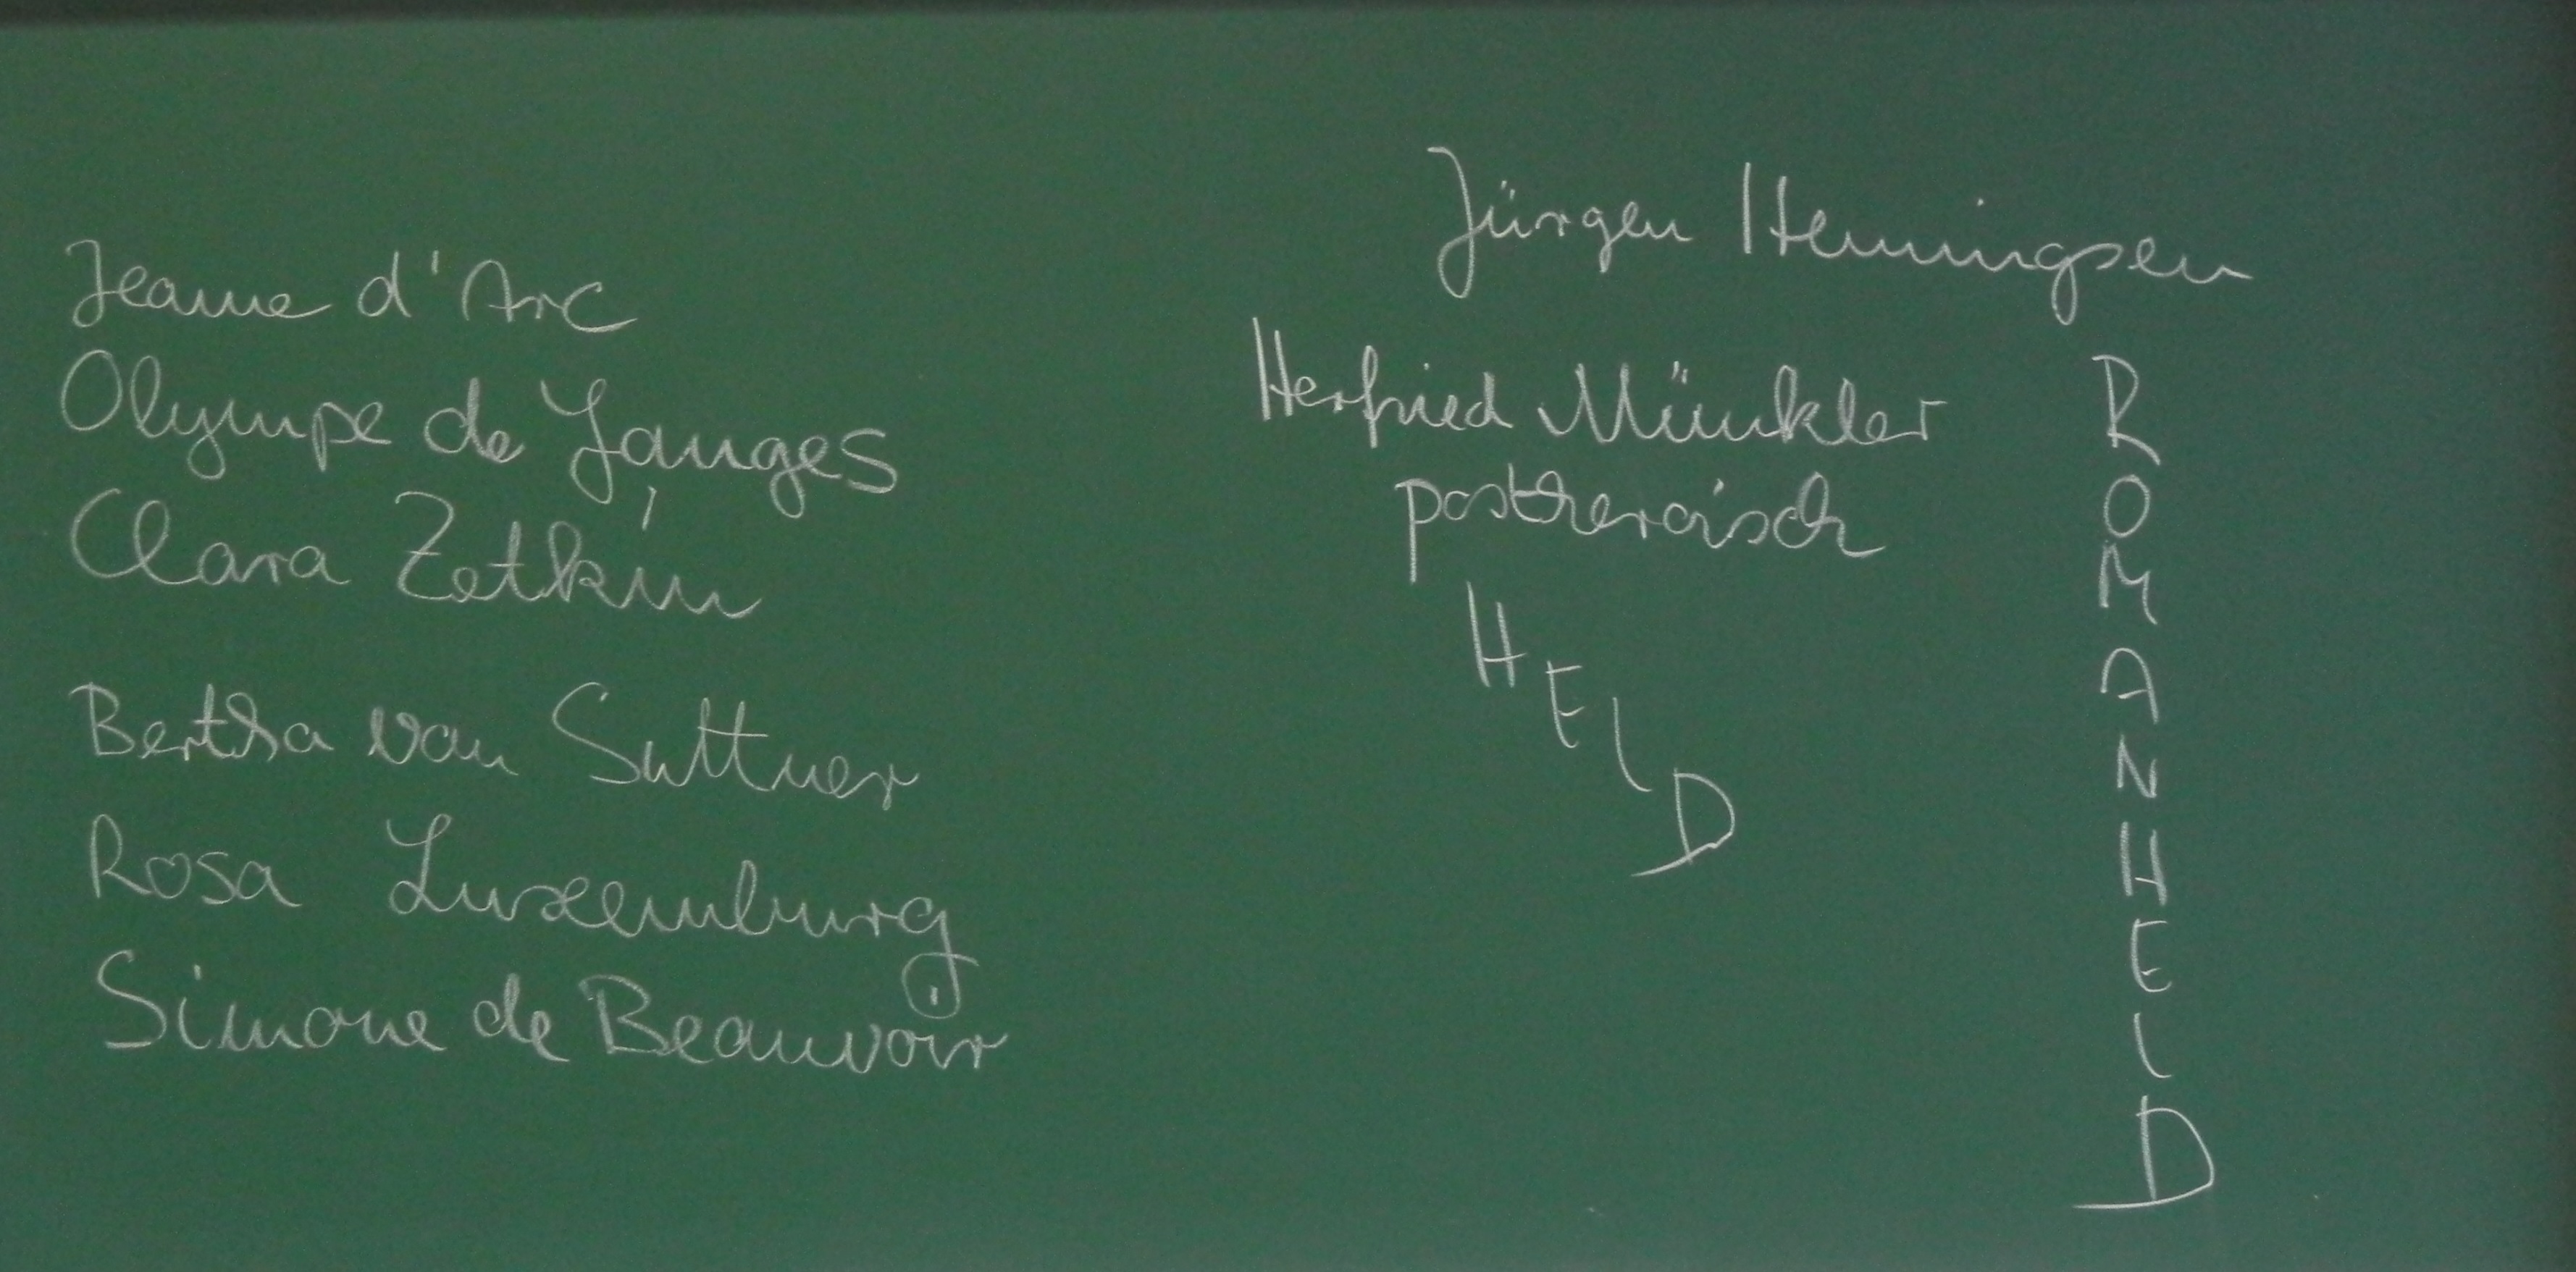 Jeanne d'Arc
Olympe de Gouges
Clara Zetkin
Bertha von Suttner
Rosa Luxemburg
Simone de Beauvoir
Jürgen Henningsen
Herfried Münkler
postheroisch
HELD
ROMANHELD